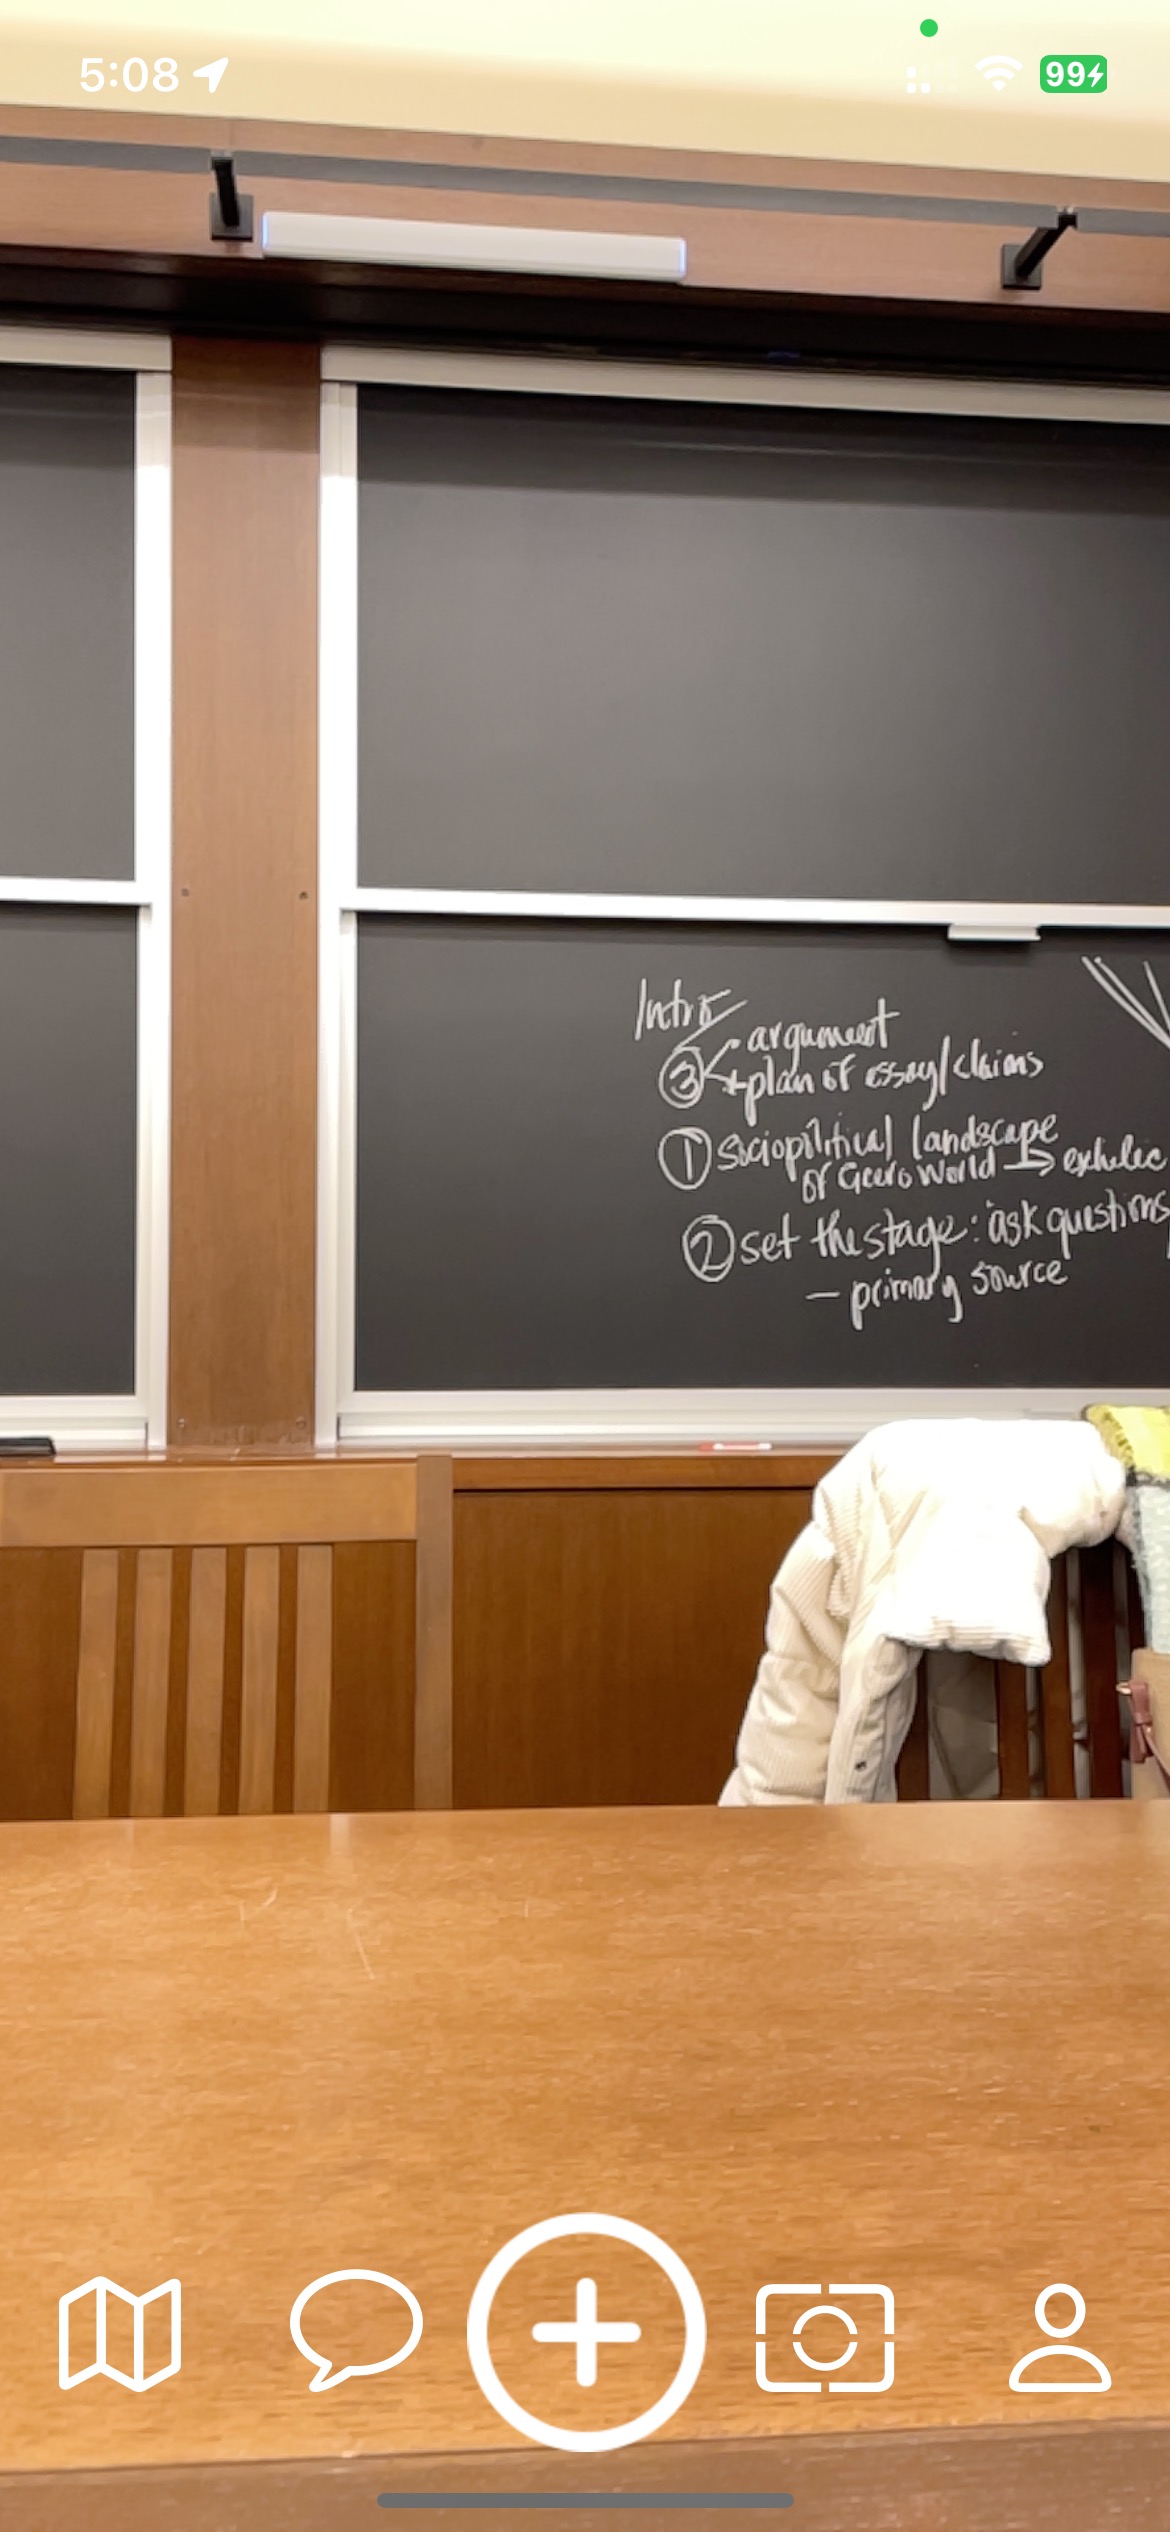 5:08
99
Intro
③ argument
+ plan of essay/claims
① sociopolitical landscape
of World →
② set the stage: ask questions
— primary source